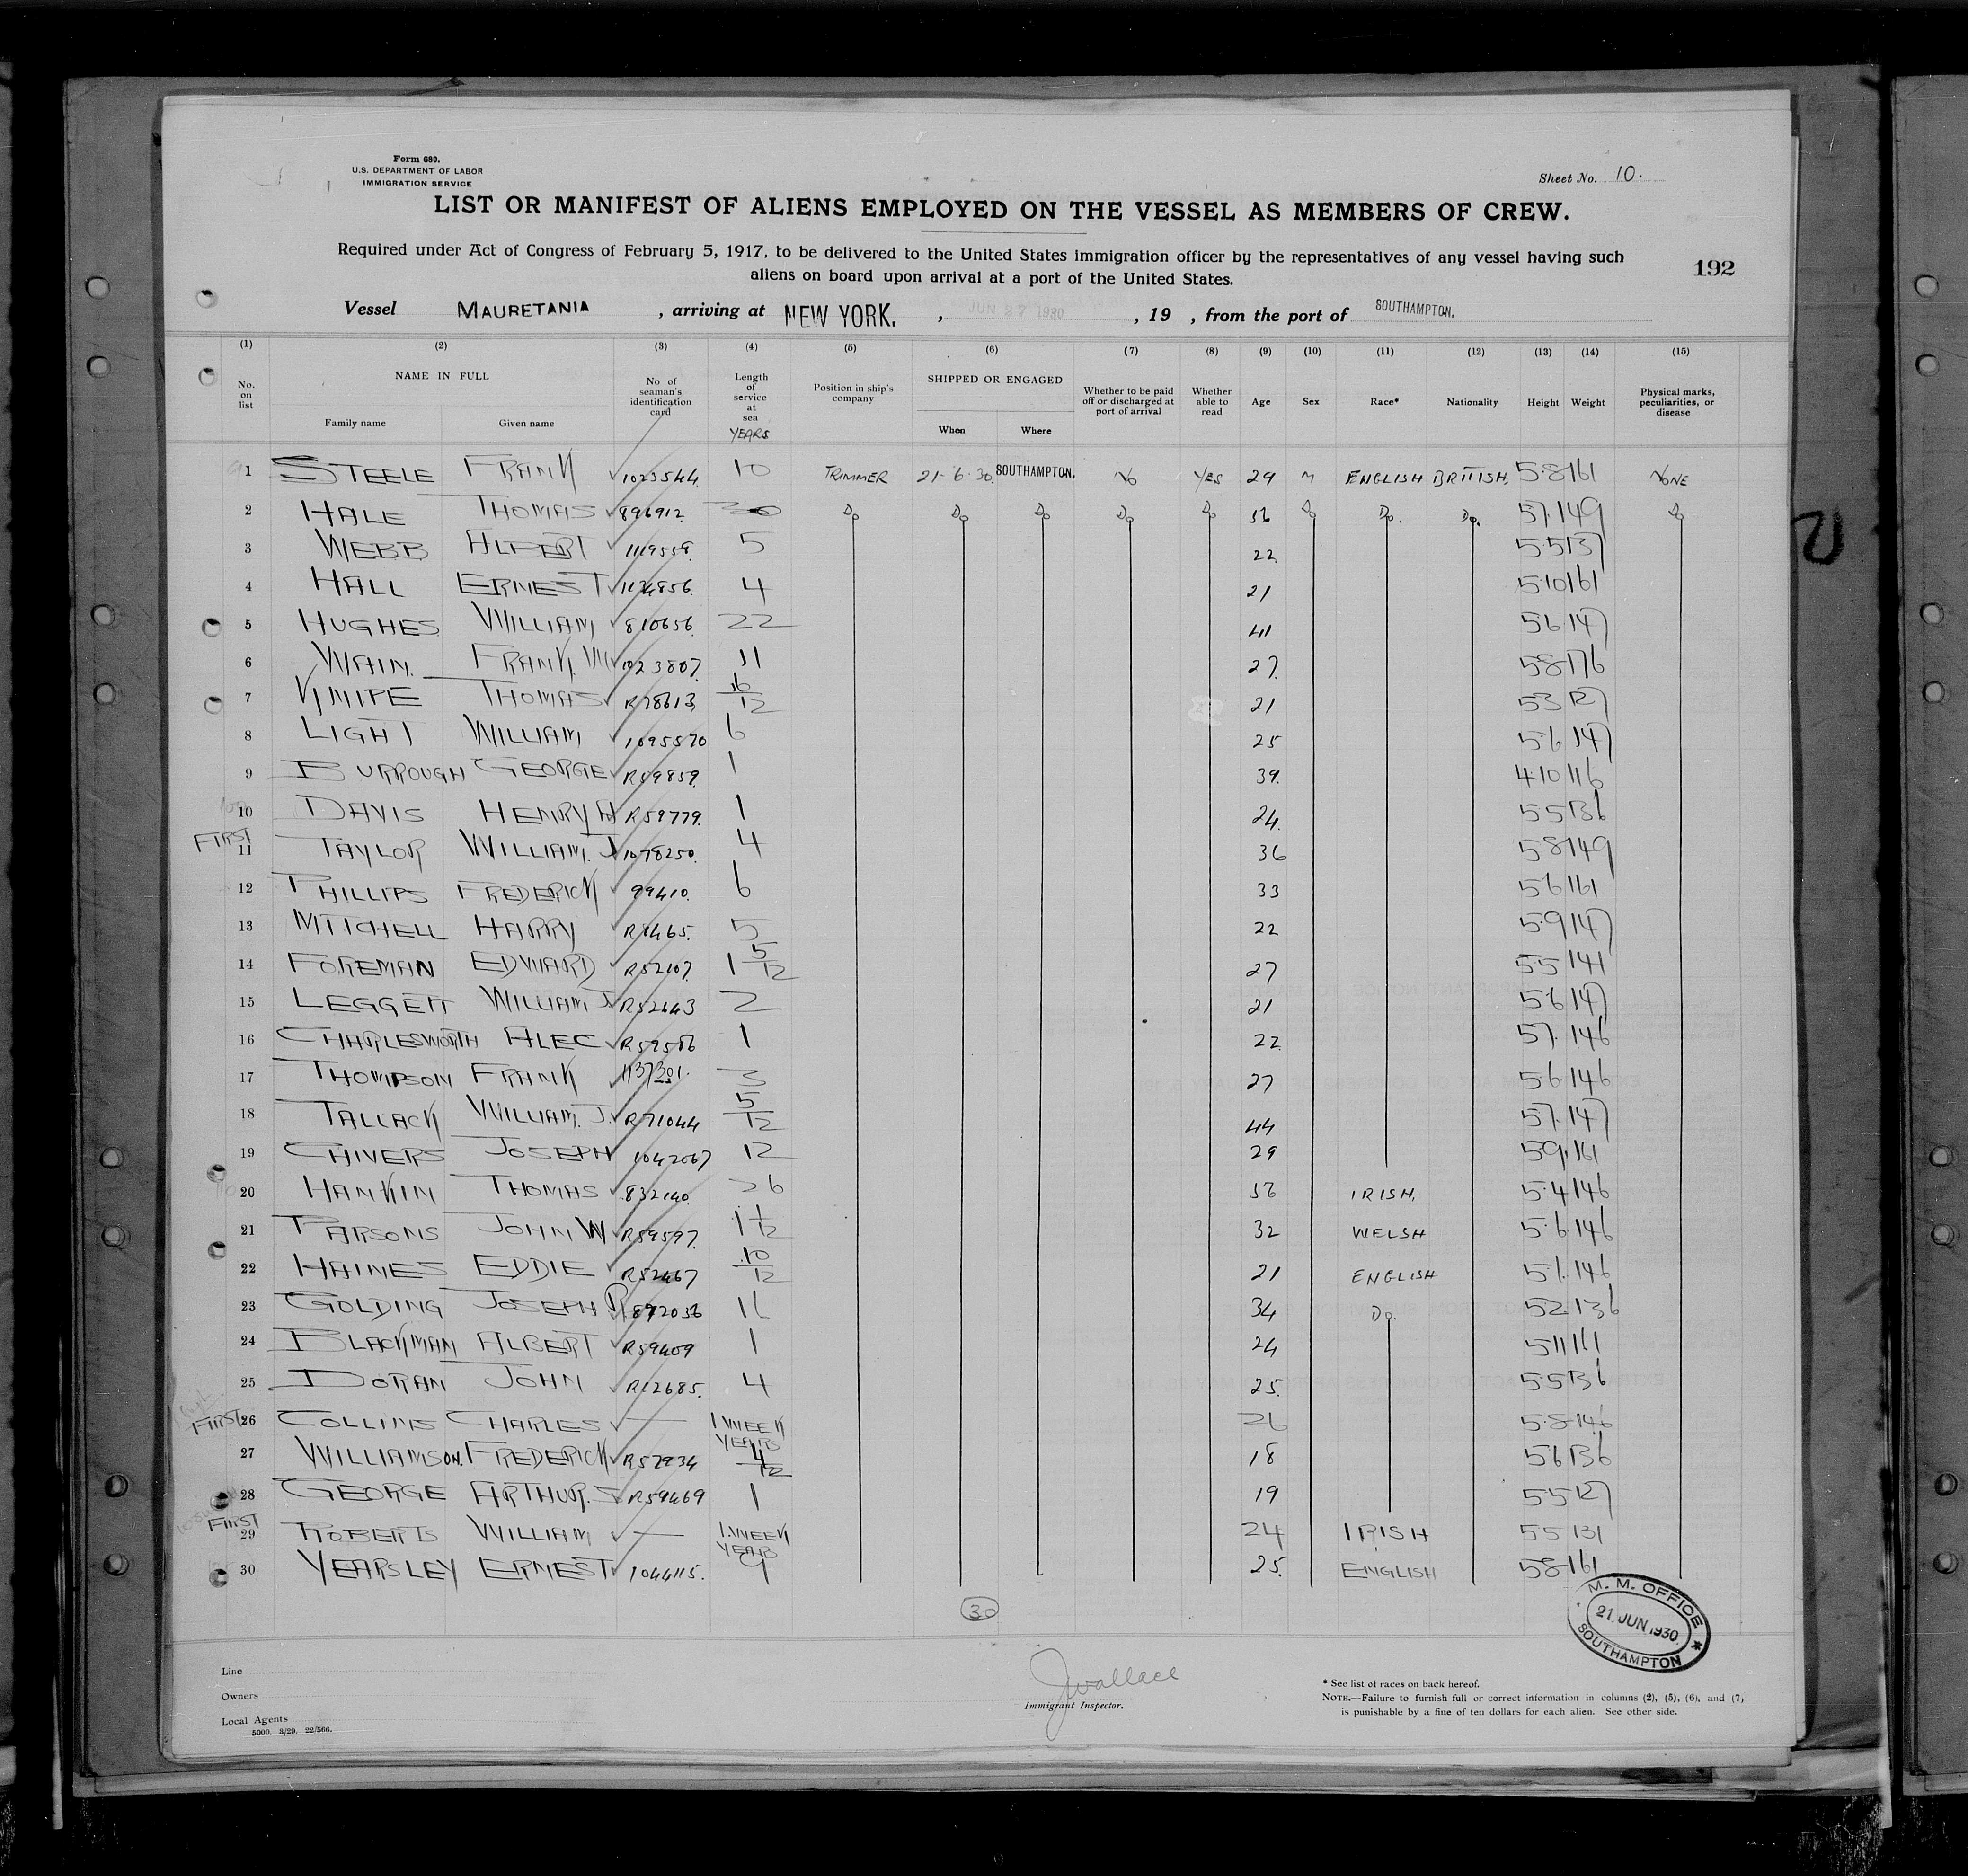 Form 680.
U.S. DEPARTMENT OF LABOR
IMMIGRATION SERVICE
Sheet No. 10.
LIST OR MANIFEST OF ALIENS EMPLOYED ON THE VESSEL AS MEMBERS OF CREW.
Required under Act of Congress of February 5, 1917, to be delivered to the United States immigration officer by the representatives of any vessel having such
aliens on board upon arrival at a port of the United States.
192
Vessel MAURETANIA, arriving at NEW YORK., JUN 27 1930, 19 , from the port of SOUTHAMPTON.
(1) (2) (3) (4) (5) (6) (7) (8) (9) (10) (11) (12) (13) (14) (15)
No. on list NAME IN FULL Family name Given name No of seaman's identification card Length of service at sea YEARS Position in ship's company SHIPPED OR ENGAGED When Where Whether to be paid off or discharged at port of arrival Whether able to read Age Sex Race* Nationality Height Weight Physical marks, peculiarities, or disease
1 STEELE FRANK 1023544 10 TRIMMER 21-6-30. SOUTHAMPTON. No YES 29 M ENGLISH BRITISH. 5.8 161 NONE
2 HALE THOMAS 896912 30 Do Do Do Do Do 56 Do Do. Do. 57. 149 Do
3 WEBB ALBERT 1119558 5 22 5.5 137
4 HALL ERNEST 1124856 4 21 5.10 161
5 HUGHES WILLIAM 810656 22 41 56 147
6 WAIN. FRANK. W 1023807. 11 27. 58 176
7 KNIPE THOMAS R78613 16/12 21 53 127
8 LIGHT WILLIAM 1095570 6 25 5.6 147
9 BURROUGH GEORGE R59859. 1 39. 4.10 116
10 DAVIS HENRY H R59779. 1 24. 55 136
FIRST
11 TAYLOR WILLIAM. J 1078250. 4 36 58 149
12 PHILLIPS FREDERICK 99410. 6 33 56 161
13 MITCHELL HARRY R1465. 5 22 5.9 147
14 FOREMAN EDWARD R52107. 1 5/12 27 55 141
15 LEGGETT WILLIAM J R52643 2 21 5.6 147
16 CHARLESWORTH ALEC R59586 1 22 57. 146
17 THOMPSON FRANK 1137301. 3 27 5.6 146
18 TALLACK WILLIAM. J. R71044 5/12 44 57. 147
19 CHIVERS JOSEPH 1042067 12 29 59. 161
20 HANKIN THOMAS 832140 26 56 IRISH, 5.4 146
21 PARSONS JOHN W R59597. 1 1/12 32 WELSH 5.6 146
22 HAINES EDDIE R52467 10/12 21 ENGLISH 5.6. 146
23 GOLDING JOSEPH P 872036 16 34 Do. 52 136
24 BLACKMAN ALBERT R59409 1 24 5.11 161
25 DORAN JOHN R12685. 4 25. 5.5 136
FIRST
26 COLLINS CHARLES — 1 WEEK 26 5.8 146
27 WILLIAMSON. FREDERICK R57934 YEARS 4/12 18 56 136
28 GEORGE ARTHUR. S R59469 1 19 5.5 127
FIRST
29 ROBERTS WILLIAM — 1 WEEK 24 IRISH 55 131
30 YEARSLEY ERNEST 1044115. YEARS 9 25. ENGLISH 58 161
30
M. M. OFFICE
21 JUN 1930
SOUTHAMPTON
Line
Owners
Local Agents
5000. 3/29. 22/566.
J Wallace
Immigrant Inspector.
* See list of races on back hereof.
NOTE.—Failure to furnish full or correct information in columns (2), (5), (6), and (7,
is punishable by a fine of ten dollars for each alien. See other side.